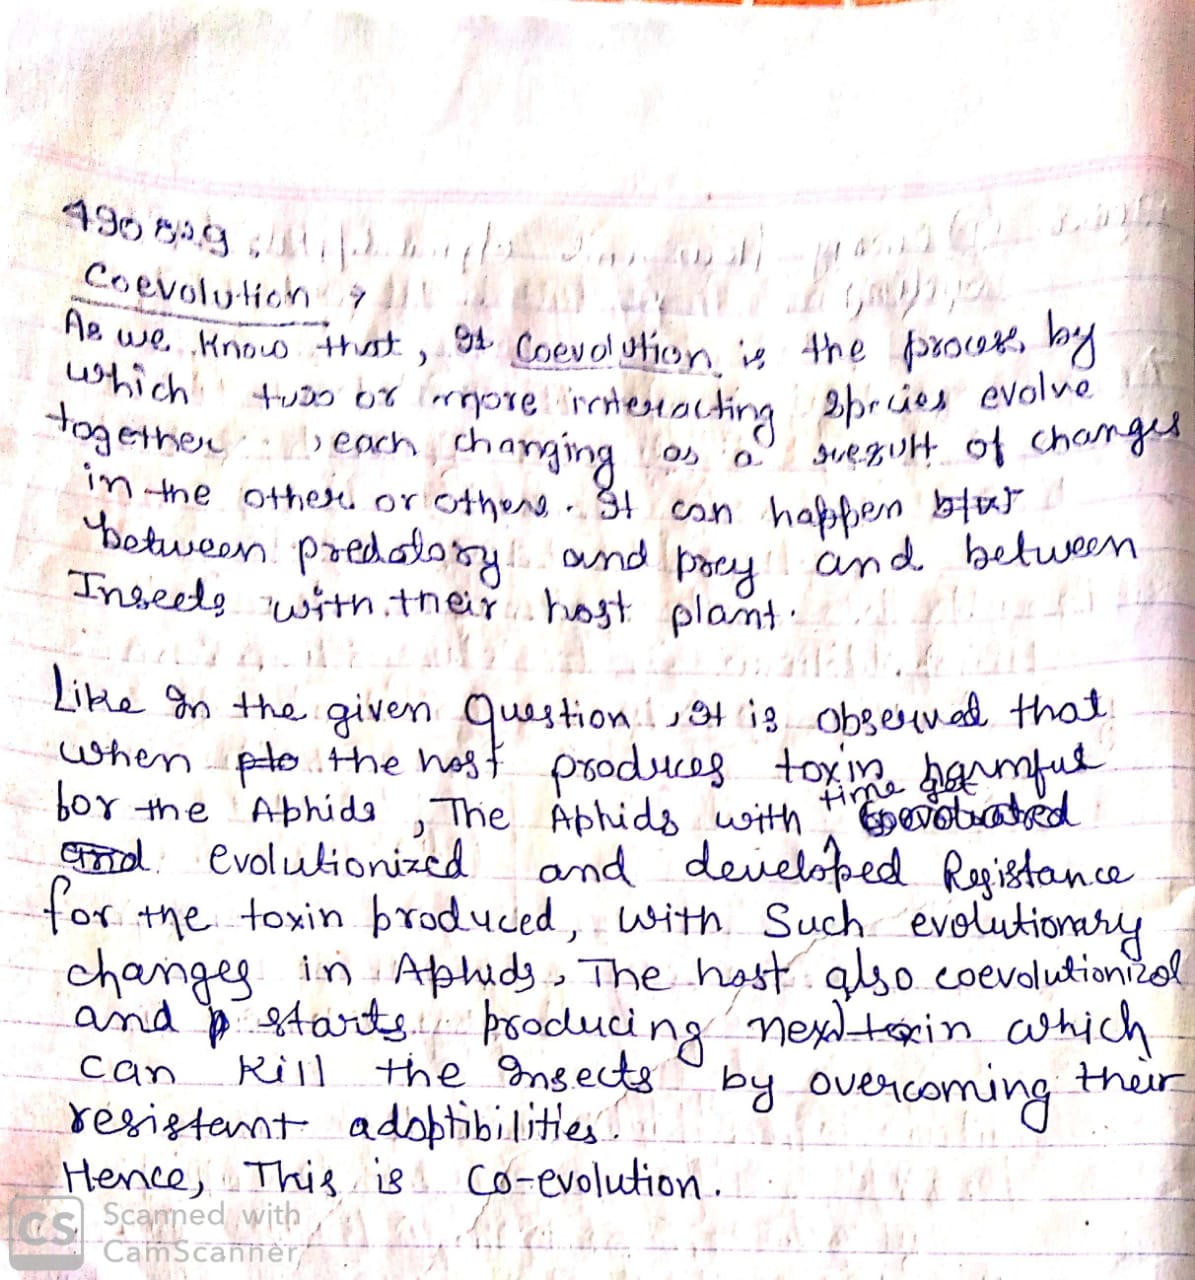 Coevolution →
As we know that, It Coevolution is the process by
which two or more interacting species evolve
together, each changing as a result of changes
in the other or others. It can happen
between predatory and prey and between
Insects with their host plant.
Like In the given Question, It is observed that
when the host produces toxin harmful
for the Aphids, The Aphids with time get
evolutionized and developed Registance
for the toxin produced, with Such evolutionary
changes in Aphids, The host also coevolutionizd
and starts producing new toxin which
can Kill the Insects by overcoming their
resistant adoptibilities.
Hence, This is Co-evolution.
CS Scanned with
CamScanner